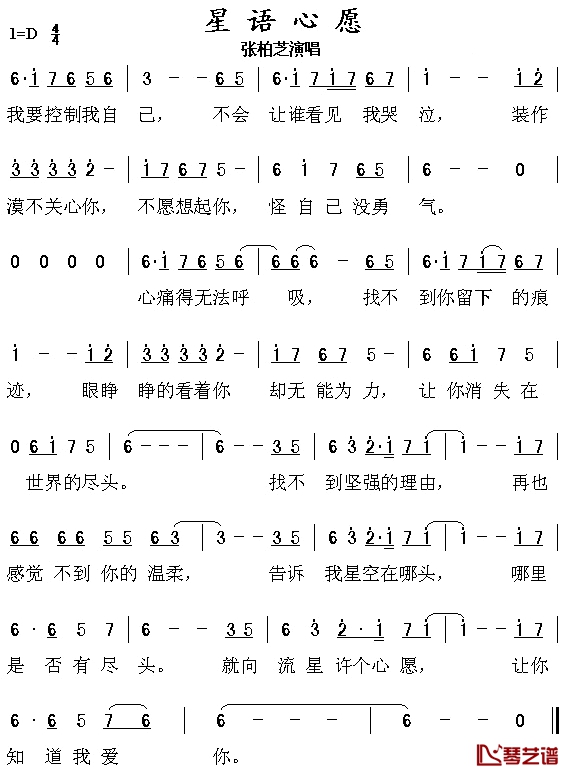 星语心愿
1=D 4/4
张柏芝演唱
6·i 7 6 5 6 | 3 - - 6 5 | 6·i 7 i 7 6 7 | i - - i 2
我要控制我自 己， 不会 让谁看见 我哭 泣， 装作
3 3 3 3 2 - | i 7 6 7 5 - | 6 i 7 5 | 6 - - 0
漠不关心你， 不愿想起你， 怪 自己 没勇 气。
0 0 0 0 | 6·i 7 6 5 6 | 6 6 6 - 6 5 | 6·i 7 i 7 6 7
心痛得无法呼 吸， 找不 到你留下 的痕
i - - i 2 | 3 3 3 3 2 - | i 7 6 7 5 - | 6 6 i 7 5
迹， 眼睁 睁的看着你 却无 能为 力， 让 你消 失 在
0 6 i 7 5 | 6 - - - | 6 - - 3 5 | 6 3 2·i 7 i | i - - i 7
世界的尽头。 找不 到坚强的理由， 再也
6 6 6 6 5 5 6 3 | 3 - - 3 5 | 6 3 2·i 7 i | i - - i 7
感觉 不到 你的 温柔， 告诉 我星空在哪头， 哪里
6 · 6 5 7 | 6 - - 3 5 | 6 3 2·i 7 i | i - - i 7
是 否 有 尽 头。 就向 流 星 许个心 愿， 让你
6 · 6 5 7 6 | 6 - - - | 6 - - 0 ‖
知 道 我 爱 你。
琴艺谱